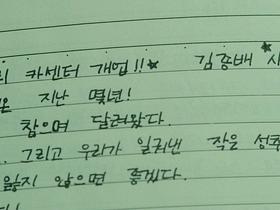 리 카센터 개업!!★ 김종배 사
온 지난 몇년!
참으며 달려왔다.
. 그리고 우리가 일궈낸 작은 성취
잃지 않으면 좋겠다.